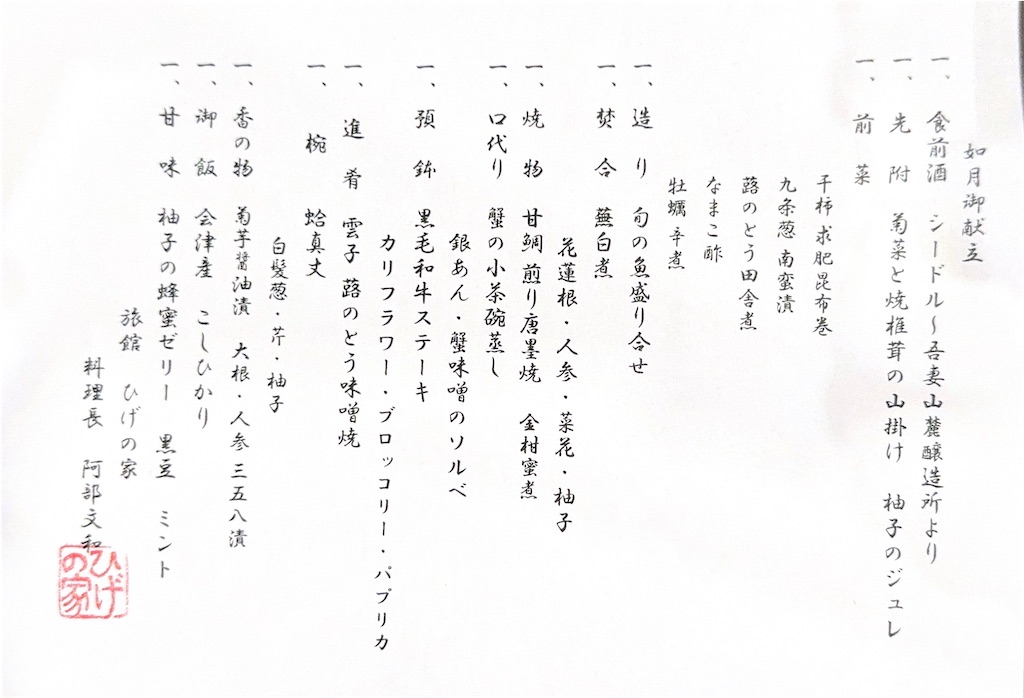 如月御献立
一、食前酒 シードル～吾妻山麓醸造所より
一、先附 菊菜と焼椎茸の山掛け 柚子のジュレ
一、前菜
干柿求肥昆布巻
九条葱南蛮漬
蕗のとう田舎煮
なまこ酢
牡蠣辛煮
一、造り 旬の魚盛り合せ
一、焚合 蕪白煮
花蓮根・人参・菜花・柚子
一、焼物 甘鯛煎り唐墨焼 金柑蜜煮
一、口代り 蟹の小茶碗蒸し
銀あん・蟹味噌のソルベ
一、預鉢 黒毛和牛ステーキ
カリフラワー・ブロッコリー・パプリカ
一、進肴 雲子蕗のとう味噌焼
一、椀 蛤真丈
白髪葱・芹・柚子
一、香の物 菊芋醤油漬 大根・人参三五八漬
一、御飯 会津産 こしひかり
一、甘味 柚子の蜂蜜ゼリー 黒豆 ミント
旅館 ひげの家
料理長 阿部文和
ひげの家